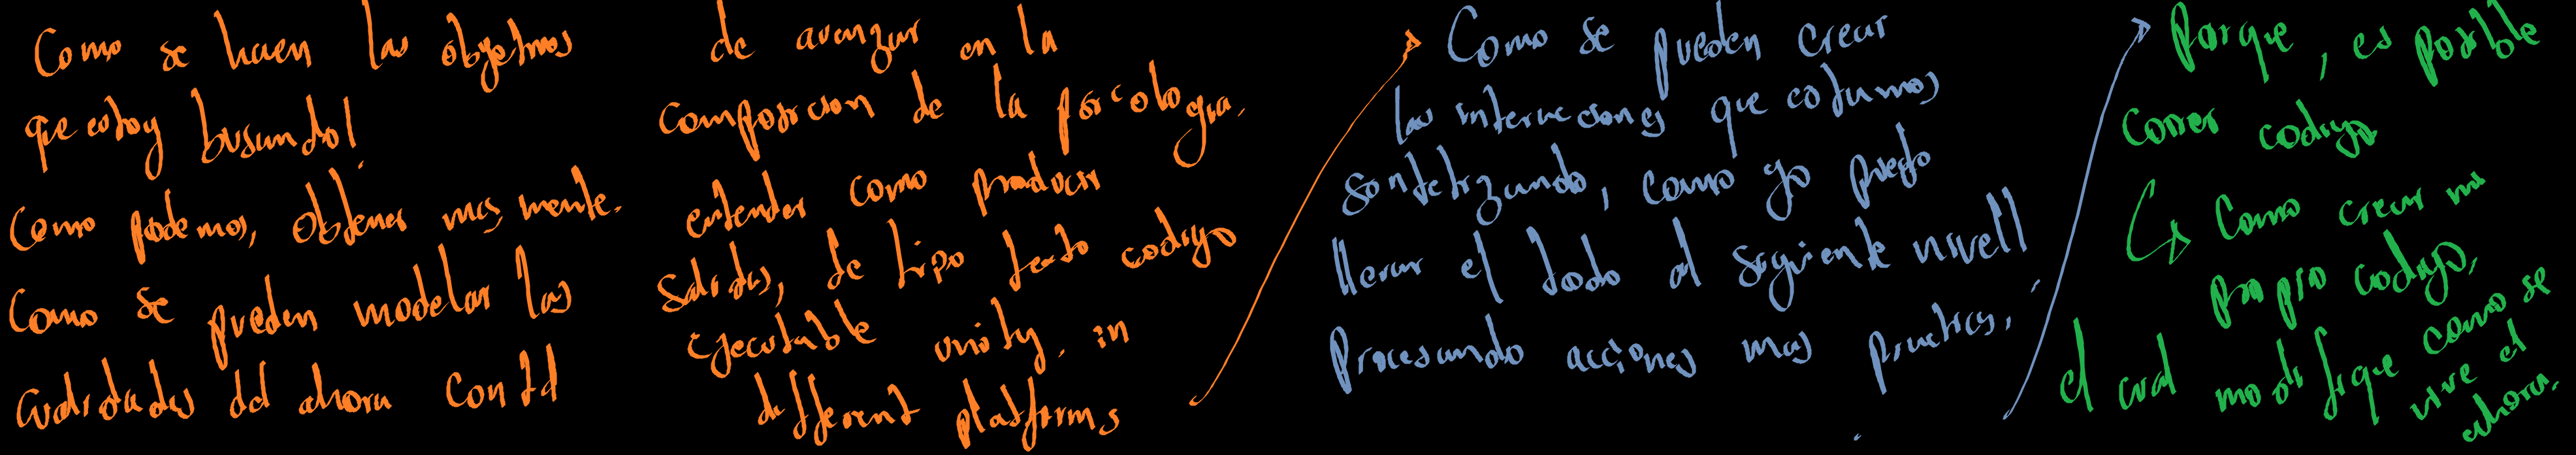 Como se hacen las objetivos
que estoy buscando!
Como podemos, obtener mas mente.
Como se pueden modelar las
cualidades del ahora con
de avanzar en la
composicion de la psicologia.
entender como producir
salidas, de tipo texto codigo
ejecutable unity. in
different platforms
Como se pueden crear
las interacciones que estamos
sintetizando, como yo puedo
llevar el todo al siguiente nivel!
Procesando acciones mas practicas,
Porque, es posible
correr codigo
Como crear mi
propio codigo,
el cual modifique como se
vive el
ahora.